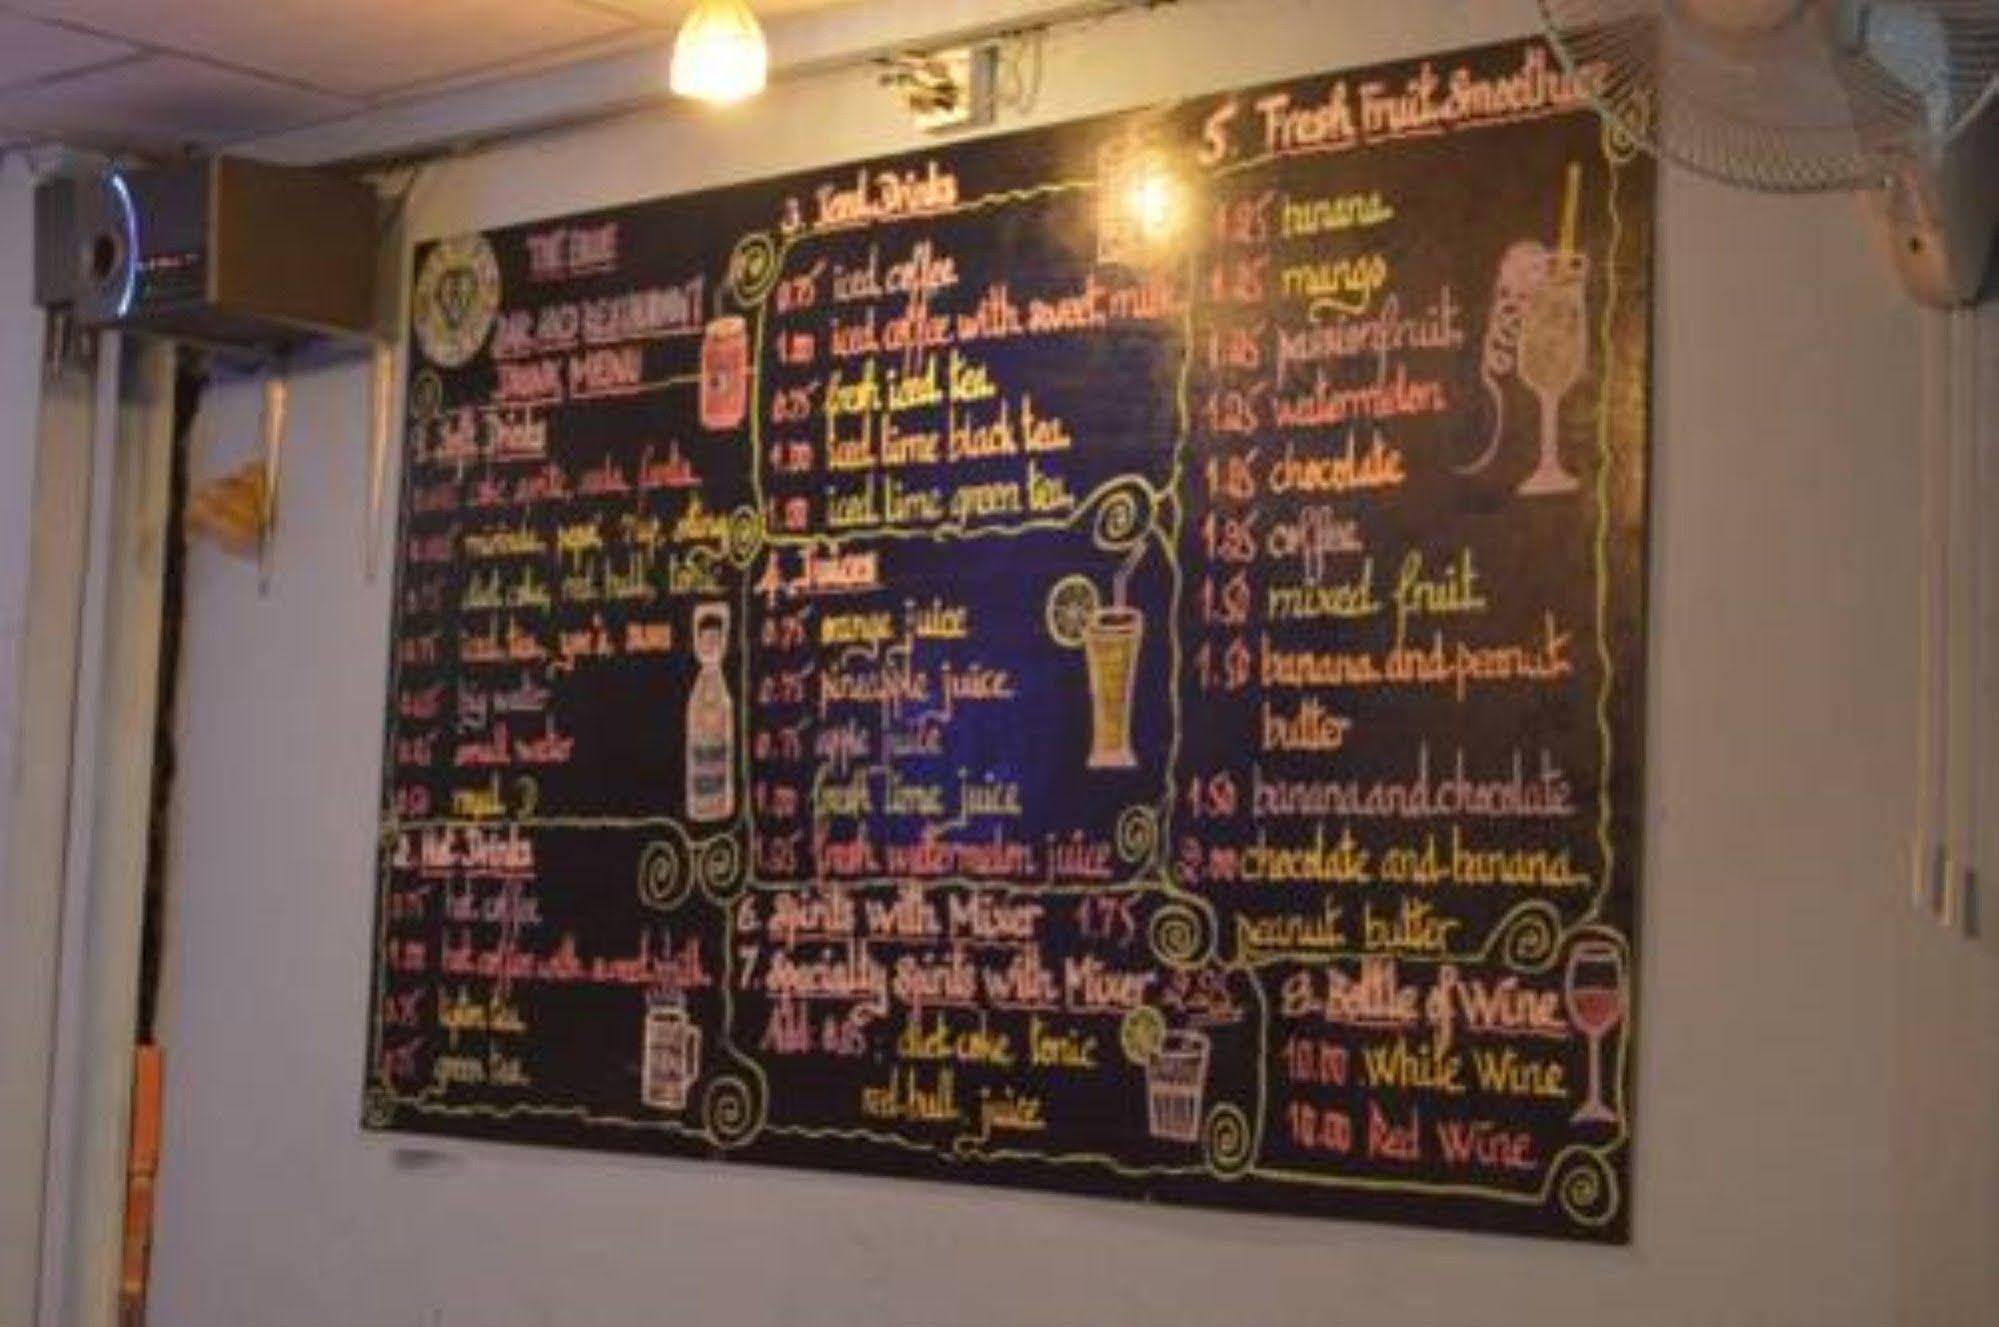 BAR AND RESTAURANT
DRINK MENU
1. Soft Drinks
coke, sprite, soda, fanta
mirinda, 7up, sting
diet coke, red bull, tonic
iced tea,
big water
small water
0.50
2. Hot Drinks
0.75 hot coffee
1.00 hot coffee with sweet milk
0.75 lipton tea
0.75 green tea
3. Iced Drinks
0.75 iced coffee
1.00 iced coffee with sweet milk
0.75 fresh iced tea
1.00 iced lime black tea
1.00 iced lime green tea
4. Juices
0.75 orange juice
0.75 pineapple juice
0.75 apple juice
1.00 fresh lime juice
1.25 fresh watermelon juice
6. Spirits with Mixer 1.75
7. Specialty Spirits with Mixer
Add diet coke tonic
red bull juice
5. Fresh Fruit Smoothies
1.25 banana
1.25 mango
1.25 passionfruit
1.25 watermelon
1.25 chocolate
1.25 coffee
1.50 mixed fruit
1.50 banana and peanut
butter
1.50 banana and chocolate
2.00 chocolate and banana
peanut butter
8. Bottle of Wine
10.00 White Wine
10.00 Red Wine